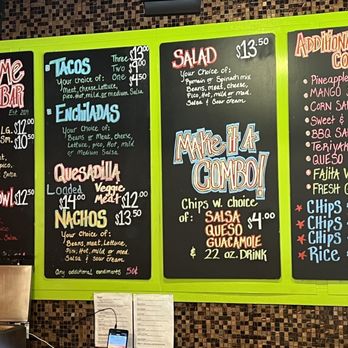 ME
BAR
Est. 201
LG. $12.00
Sm. $10.50
wl $12.50
TACOS Three $13.00
Two $9.00
One $4.50
Your choice of:
Meat, cheese, Lettuce,
pico, Hot, mild or medium, Salsa
Enchiladas
Your Choice of:
Beans or Meat, cheese,
Lettuce, pico, Hot, mild
or medium Salsa
QUESADILLA
Loaded Veggie $12.00
$14.00 Meat
NACHOS $13.50
Your choice of:
Beans, Meat, Lettuce,
Pico, mild or medium
Salsa & Sour cream
Any additional condiments 50¢
SALAD $13.50
Your Choice of:
Romain or Spinach mix
Beans, meat, cheese,
Pico, Hot, mild or med.
Salsa & Sour cream
Make it A
COMBO!
Chips w. choice
of: SALSA $4.00
QUESO
GUACAMOLE
& 22 oz. DRINK
Additiona
Co
Pineapple
MANGO
CORN SAL
Sweet &
BBQ SA
Teriyak
QUESO
FAJITA V
FRESH
Chips
Chips
Chips
Rice